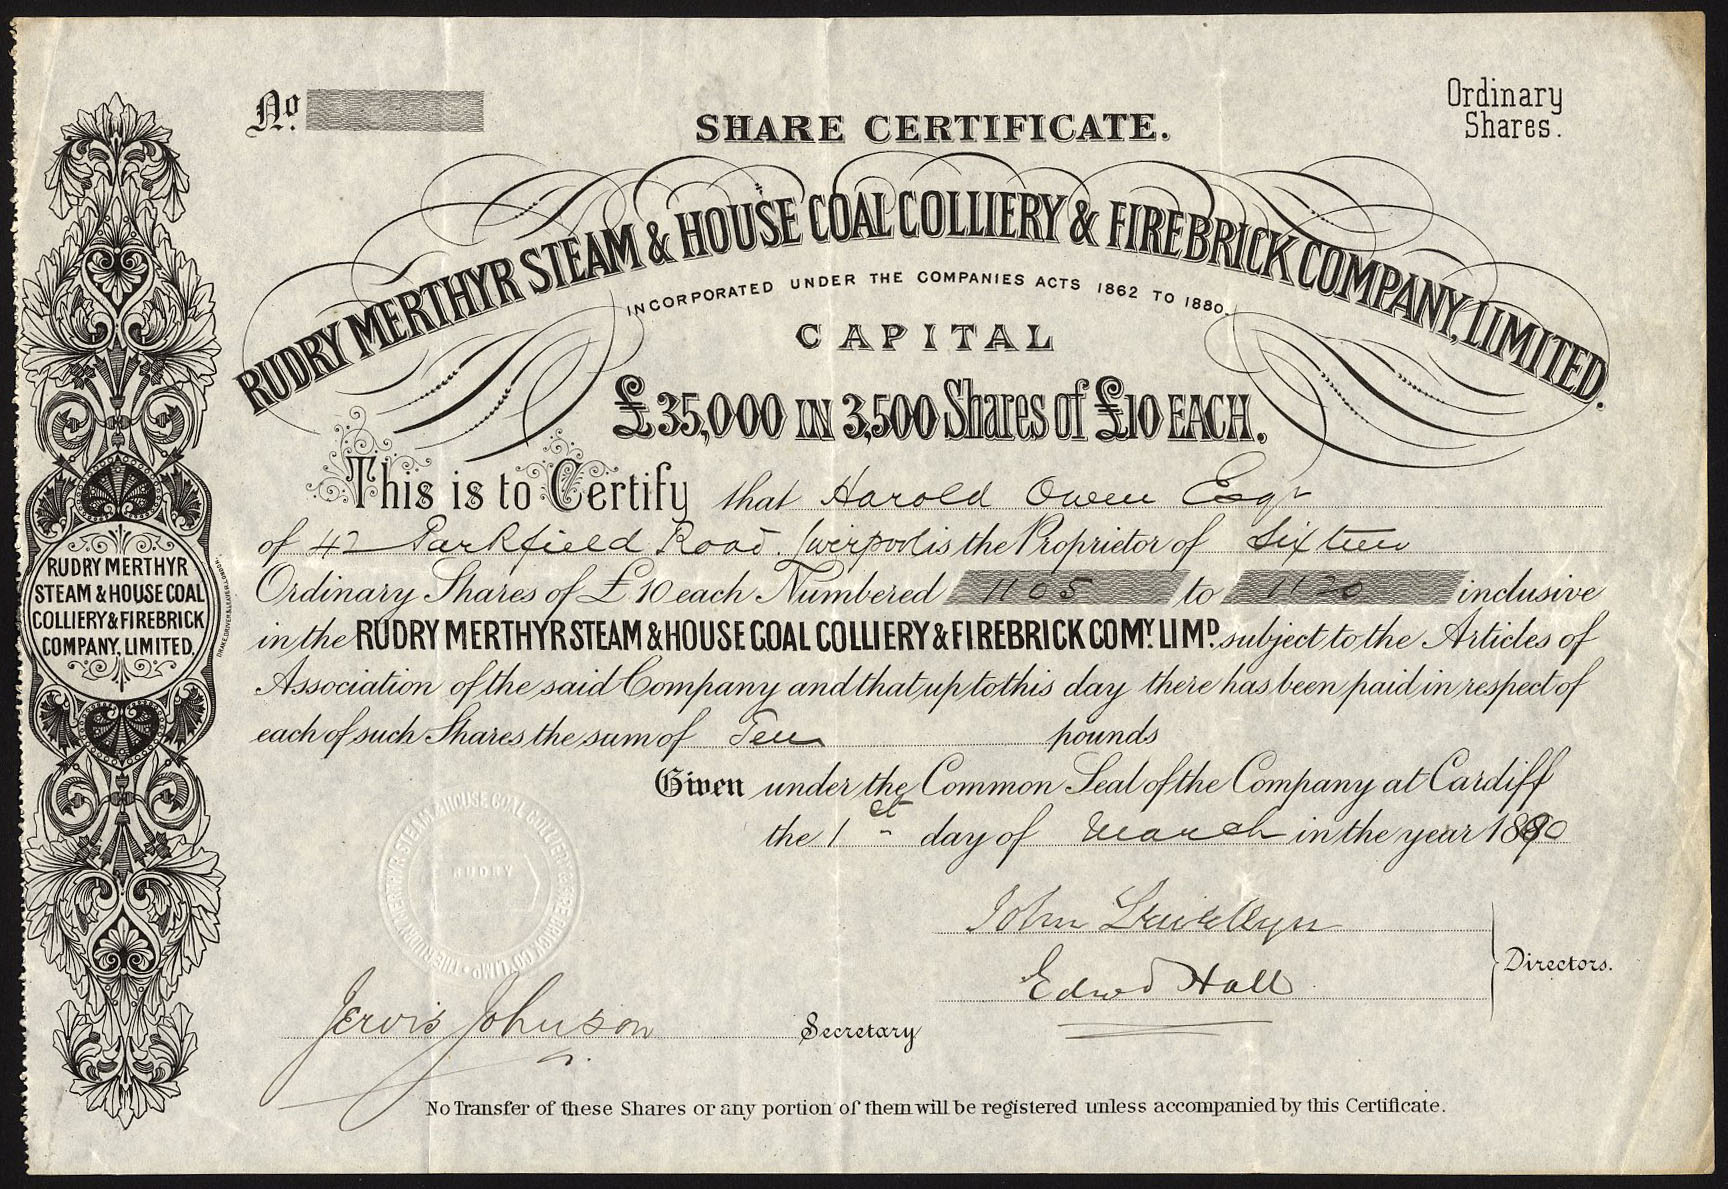 No.
Ordinary
Shares.
SHARE CERTIFICATE.
RUDRY MERTHYR STEAM & HOUSE COAL COLLIERY & FIREBRICK COMPANY, LIMITED.
INCORPORATED UNDER THE COMPANIES ACTS 1862 TO 1880.
CAPITAL
£35,000 IN 3,500 Shares of £10 EACH.
This is to Certify that Harold Owen Esqr
of 42 Parkfield Road. Liverpool is the Proprietor of Sixteen
Ordinary Shares of £10 each Numbered 1105 to 1120 inclusive
in the RUDRY MERTHYR STEAM & HOUSE COAL COLLIERY & FIREBRICK COMY. LIMD. subject to the Articles of
Association of the said Company and that up to this day there has been paid in respect of
each of such Shares the sum of Ten pounds
Given under the Common Seal of the Company at Cardiff
the 1st day of March in the year 1890
John Llewellyn
Edwd Hall
Directors.
Jervis Johnson Secretary
No Transfer of these Shares or any portion of them will be registered unless accompanied by this Certificate.
RUDRY MERTHYR
STEAM & HOUSE COAL
COLLIERY & FIREBRICK
COMPANY, LIMITED.
DRAKE, DRIVER & LEAVER, LONDON.
THE RUDRY MERTHYR STEAM & HOUSE COAL COLLIERY & FIRE BRICK CO LIMD
RUDRY